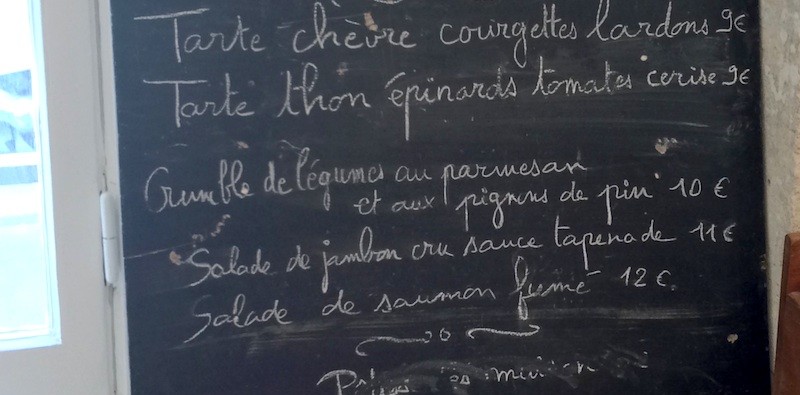 Tarte chèvre courgettes lardons 9€
Tarte thon épinards tomates cerise 9€
Crumble de légumes au parmesan
et aux pignons de pin 10 €
Salade de jambon cru sauce tapenade 11€
Salade de saumon fumé 12 €.